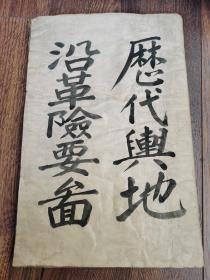 歷代輿地
沿革險要啚